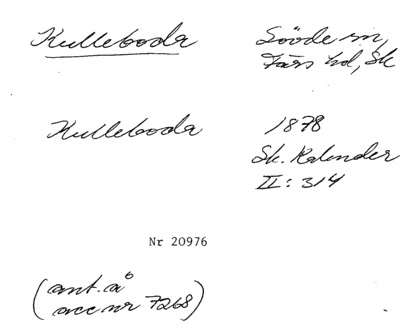 Kulleboda Sövde sn,
Färs hd, Sk
Kulleboda 1878
Sk. Kalender
II: 314
Nr 20976
(ant. å
acc nr 7268)